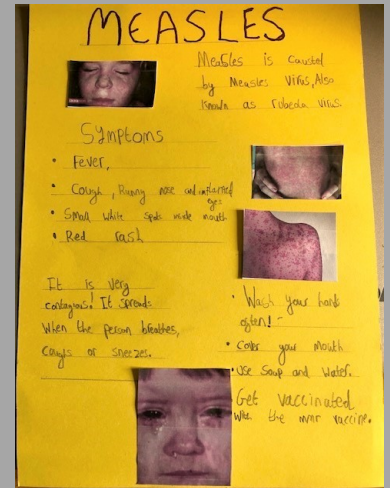 MEASLES
Measles is caused
by Measles Virus, Also
known as rubeola virus.
Symptoms
• Fever,
• Cough, Runny nose and inflamed
eyes
• Small white spots inside mouth
• Red rash
It is very
contagious! It spreads
When the person breathes,
Coughs or sneezes.
• Wash your hands
often!
• Cover your mouth
• Use Soap and Water.
Get vaccinated
With the mmr vaccine.